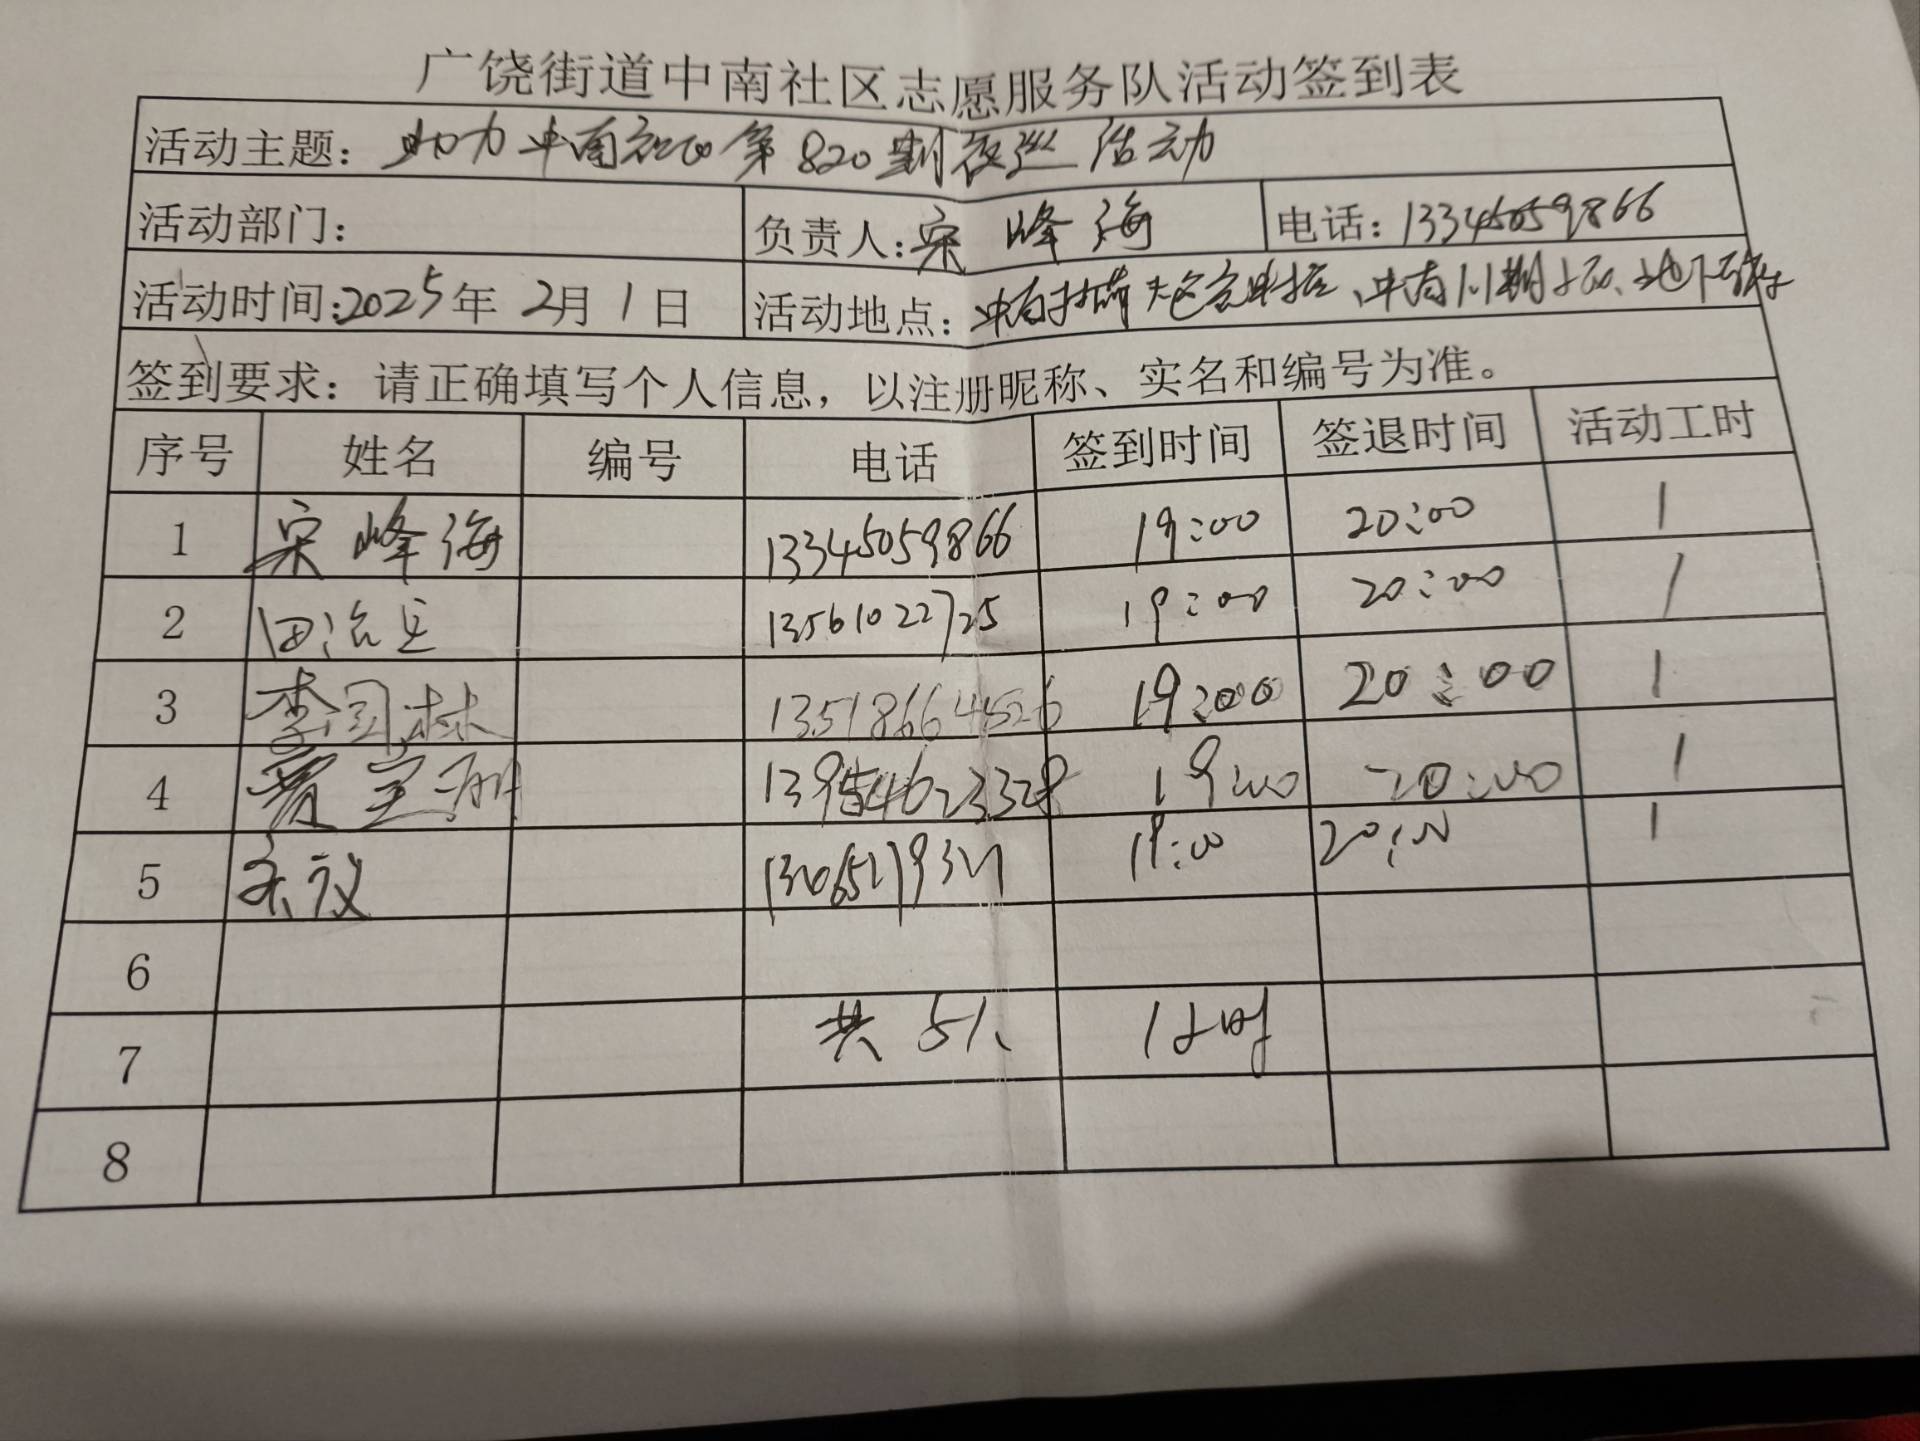 广饶街道中南社区志愿服务队活动签到表
活动主题：助力中南社区第820期夜巡活动
活动部门： 负责人：宋峰海 电话：13345059866
活动时间：2025年2月1日 活动地点：中南 中南川期 地下
签到要求：请正确填写个人信息，以注册昵称、实名和编号为准。
序号 姓名 编号 电话 签到时间 签退时间 活动工时
1 宋峰海 13345059866 19:00 20:00 1
2 田治 13561022725 19:00 20:00 1
3 李司林 13518664526 19:00 20:00 1
4 19:00 20:00 1
5 19:00 20:00 1
6
7 共5人 1小时
8